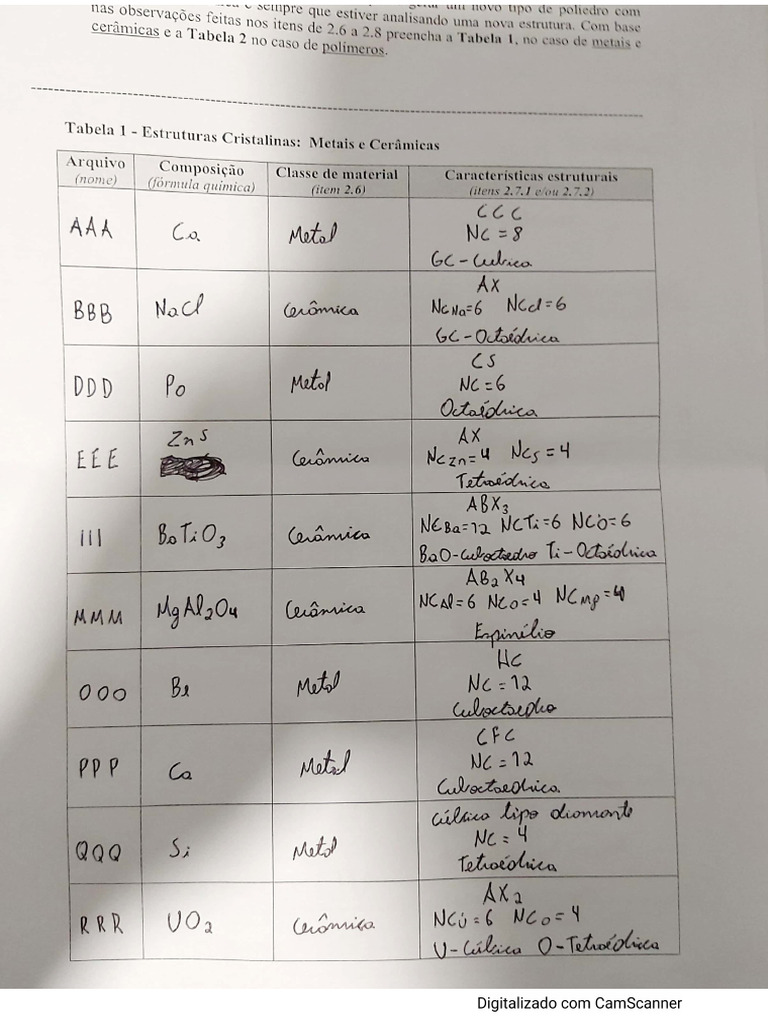 sempre que estiver analisando uma nova estrutura. Com base
um novo tipo de poliedro com
nas observações feitas nos itens de 2.6 a 2.8 preencha a Tabela 1, no caso de metais e
cerâmicas e a Tabela 2 no caso de polímeros.
Tabela 1 - Estruturas Cristalinas: Metais e Cerâmicas
Arquivo (nome) Composição (fórmula química) Classe de material (item 2.6) Características estruturais (itens 2.7.1 e/ou 2.7.2)
AAA Ca Metal CCC
NC = 8
GC - Cúbica
BBB NaCl Cerâmica AX
NCNa=6 NCCl=6
GC - Octaédrica
DDD Po Metal CS
NC = 6
Octaédrica
EEE ZnS Cerâmica AX
NCZn=4 NCS=4
Tetraédrica
iii BaTiO3 Cerâmica ABX3
NCBa=12 NCTi=6 NCO=6
BaO-cuboctaedro Ti-Octaédrica
MMM MgAl2O4 Cerâmica AB2X4
NCAl=6 NCO=4 NCMg=4
Espinélio
OOO Be Metal HC
NC = 12
Cuboctaedro
PPP Ca Metal CFC
NC = 12
Cuboctaédrica
QQQ Si Metal Cúbica tipo diamante
NC = 4
Tetraédrica
RRR UO2 Cerâmica AX2
NCU=6 NCO=4
U-Cúbica O-Tetraédrica
Digitalizado com CamScanner